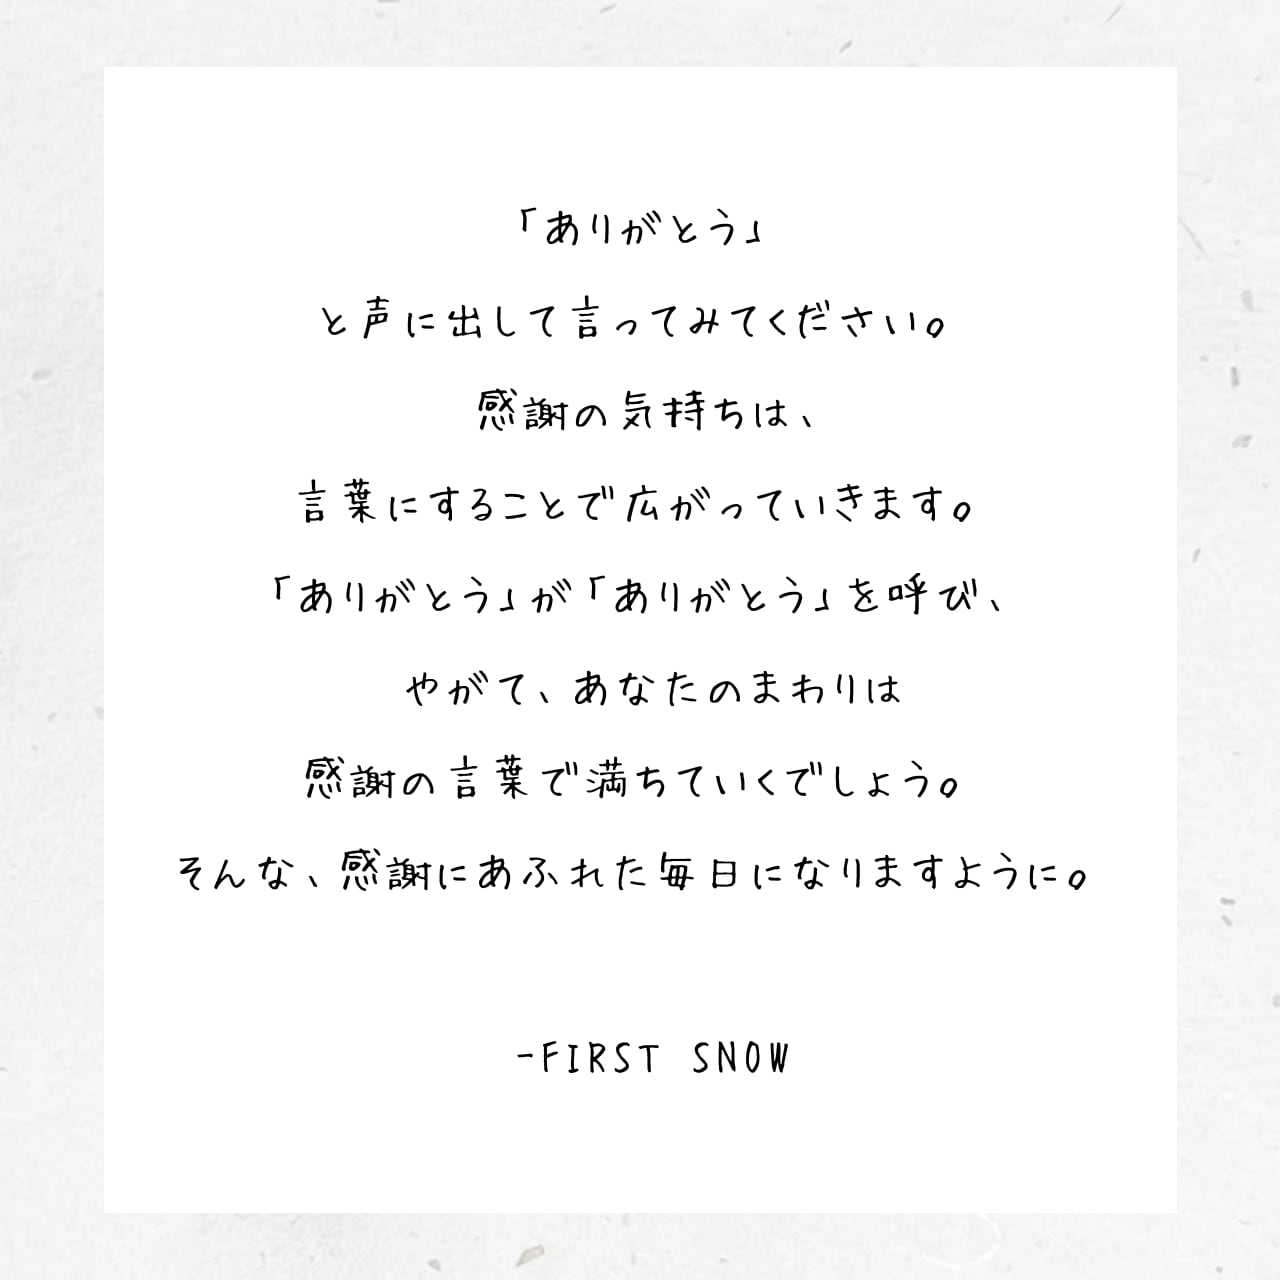 「ありがとう」
と声に出して言ってみてください。
感謝の気持ちは、
言葉にすることで広がっていきます。
「ありがとう」が「ありがとう」を呼び、
やがて、あなたのまわりは
感謝の言葉で満ちていくでしょう。
そんな、感謝にあふれた毎日になりますように。
-FIRST SNOW